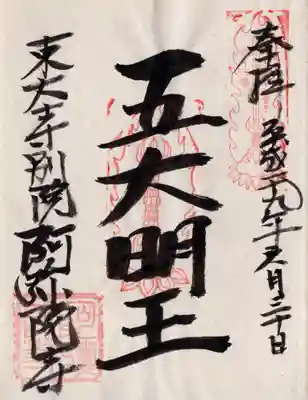 奉拝 平成二十九年六月二十日
五大明王
東大寺別院阿弥陀寺